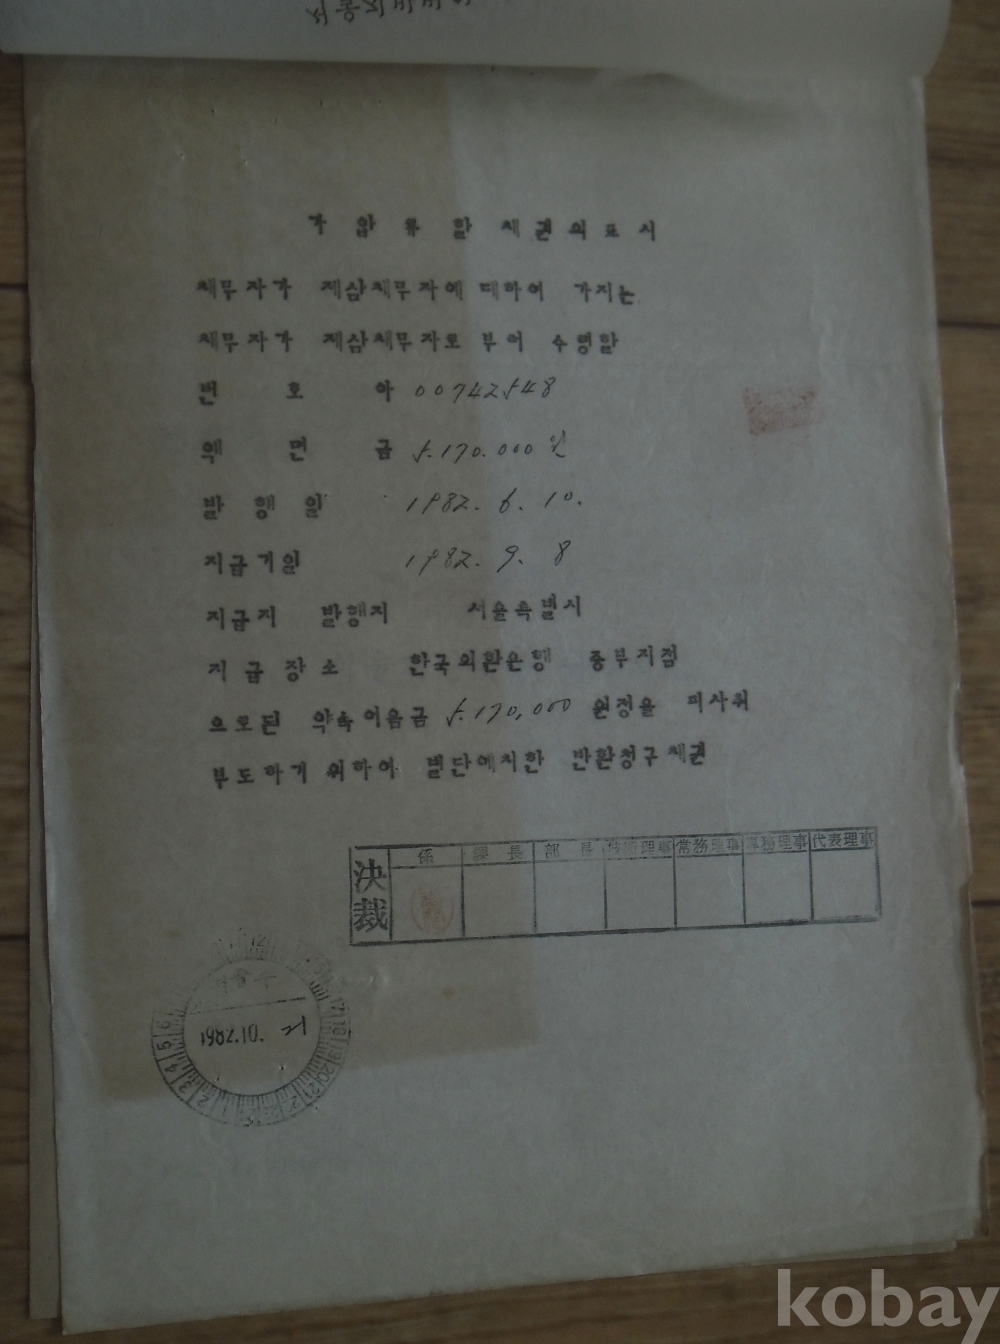 가 압 류 할 채권의표시
채무자가 제삼채무자에 대하여 가지는
채무자가 제삼채무자로 부터 수령할
번 호 아 00742548
액 면 금 5.170.000 원
발 행 일 1982. 6. 10.
지급기일 1982. 9. 8
지급지 발행지 서울특별시
지급장소 한국외환은행 중부지점
으로된 약속어음금 5.170,000 원정을 피사취
부도하기 위하여 별단예치한 반환청구채권
決裁
係 課長 部長 常務理事 專務理事 代表理事
1982.10.
kobay